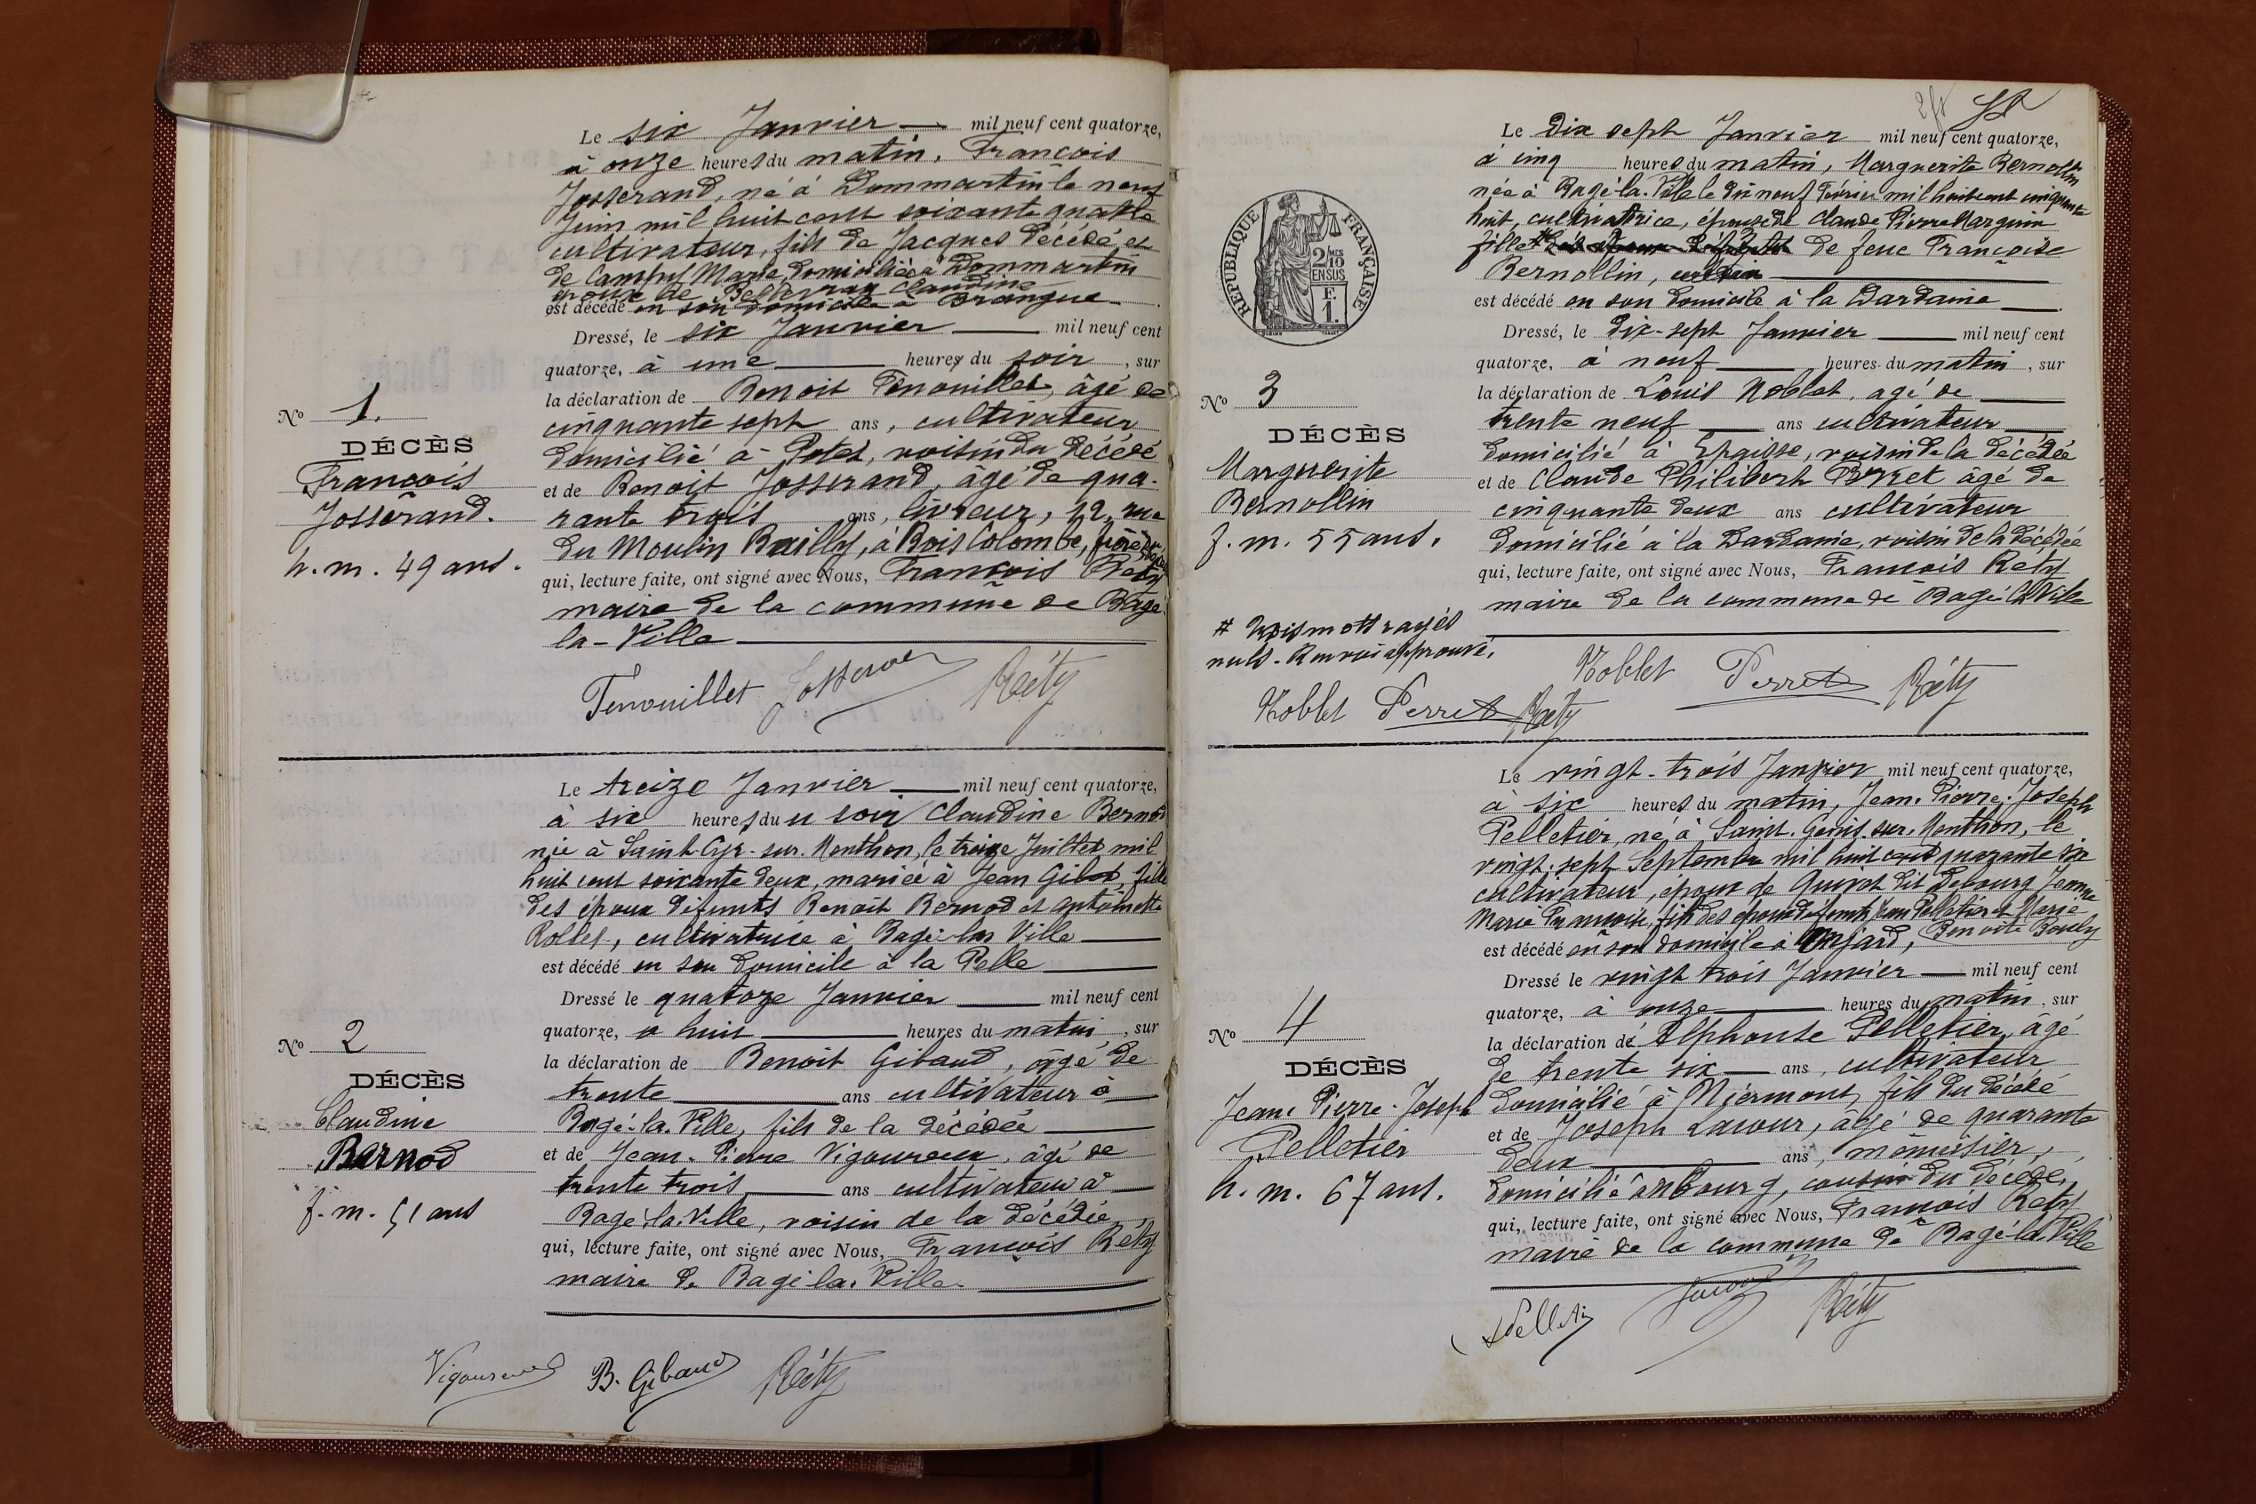 Le six Janvier mil neuf cent quatorze,
à onze heures du matin, François
Josserand, né à Dommartin le neuf
Juin mil huit cent soixante quatre
cultivateur, fils de Jacques décédé et
de Marie domiciliée à Dommartin
époux de Claudine
est décédé en son domicile à Brangue
Dressé, le six Janvier mil neuf cent
quatorze, à une heures du soir, sur
la déclaration de Benoit Fenouillet, âgé de
cinquante sept ans, cultivateur
domicilié à Potet, voisin du décédé
et de Benoit Josserand, âgé de qua-
rante trois ans, livreur, 12, rue
du Moulin Bailly, à Bois Colombe, frère
qui, lecture faite, ont signé avec Nous, François Réty
maire de la commune de Bagé
la-Ville
No 1.
DÉCÈS
François
Josserand.
h. m. 49 ans.
Fenouillet Josserand Réty
Le treize Janvier mil neuf cent quatorze,
à six heures du soir Claudine Bernod
née à Saint-Cyr-sur-Menthon, le treize Juillet mil
huit cent soixante deux, mariée à Jean fille
des époux défunts Benoit Bernod et Antoinette
Rollet, cultivatrice à Bagé-la-Ville
est décédé en son domicile à la Pelle
Dressé le quatorze Janvier mil neuf cent
quatorze, à huit heures du matin, sur
la déclaration de Benoit Gibaud, âgé de
trente ans cultivateur à
Bagé-la-Ville, fils de la décédée
et de Jean-Pierre Vigoureux, âgé de
trente trois ans cultivateur à
Bagé-la-Ville, voisin de la décédée
qui, lecture faite, ont signé avec Nous, François Réty
maire de Bagé-la-Ville
No 2
DÉCÈS
Claudine
Bernod
f. m. 51 ans
Vigoureux B. Gibaud Réty
Le Dix sept Janvier mil neuf cent quatorze,
à cinq heures du matin, Marguerite Bernollin
née à Bagé-la-Ville le dix neuf Février mil huit cent cinquante
huit, cultivatrice, épouse de Claude Pierre Marguin
fille # de feue Françoise
Bernollin,
est décédé en son domicile à la Dardaine
Dressé, le dix-sept Janvier mil neuf cent
quatorze, à neuf heures du matin, sur
la déclaration de Louis Noblet, agé de
trente neuf ans cultivateur
domicilié à Epaisse, voisin de la décédée
et de Claude Philibert Perret âgé de
cinquante deux ans cultivateur
domicilié à la Dardaine, voisin de la décédée
qui, lecture faite, ont signé avec Nous, François Réty
maire de la commune de Bagé-la-Ville
REPUBLIQUE FRANÇAISE
2/10 MES
EN SUS
F.
1.
No 3
DÉCÈS
Marguerite
Bernollin
f. m. 55 ans.
# trois mots rayés
nuls. Renvoi approuvé.
Noblet Perret Réty
Noblet Perret Réty
Le vingt-trois Janvier mil neuf cent quatorze,
à six heures du matin, Jean-Pierre-Joseph
Pelletier, né à Saint-Genis-sur-Menthon, le
vingt-sept Septembre mil huit cent quarante six
cultivateur, époux de Guyot dit Debourg Jeanne
Marie Françoise, fils des époux défunts Jean Pelletier et Marie
Benoite Bouly
est décédé en son domicile à
Dressé le vingt trois Janvier mil neuf cent
quatorze, à onze heures du matin, sur
la déclaration de Alphonse Pelletier, âgé
de trente six ans, cultivateur
domicilié à Niermont, fils du décédé
et de Joseph Lacour, âgé de quarante
deux ans, menuisier,
domicilié au bourg, cousin du décédé,
qui, lecture faite, ont signé avec Nous, François Réty
maire de la commune de Bagé-la-Ville
No 4
DÉCÈS
Jean-Pierre-Joseph
Pelletier
h. m. 67 ans.
Pelletier Lacour Réty